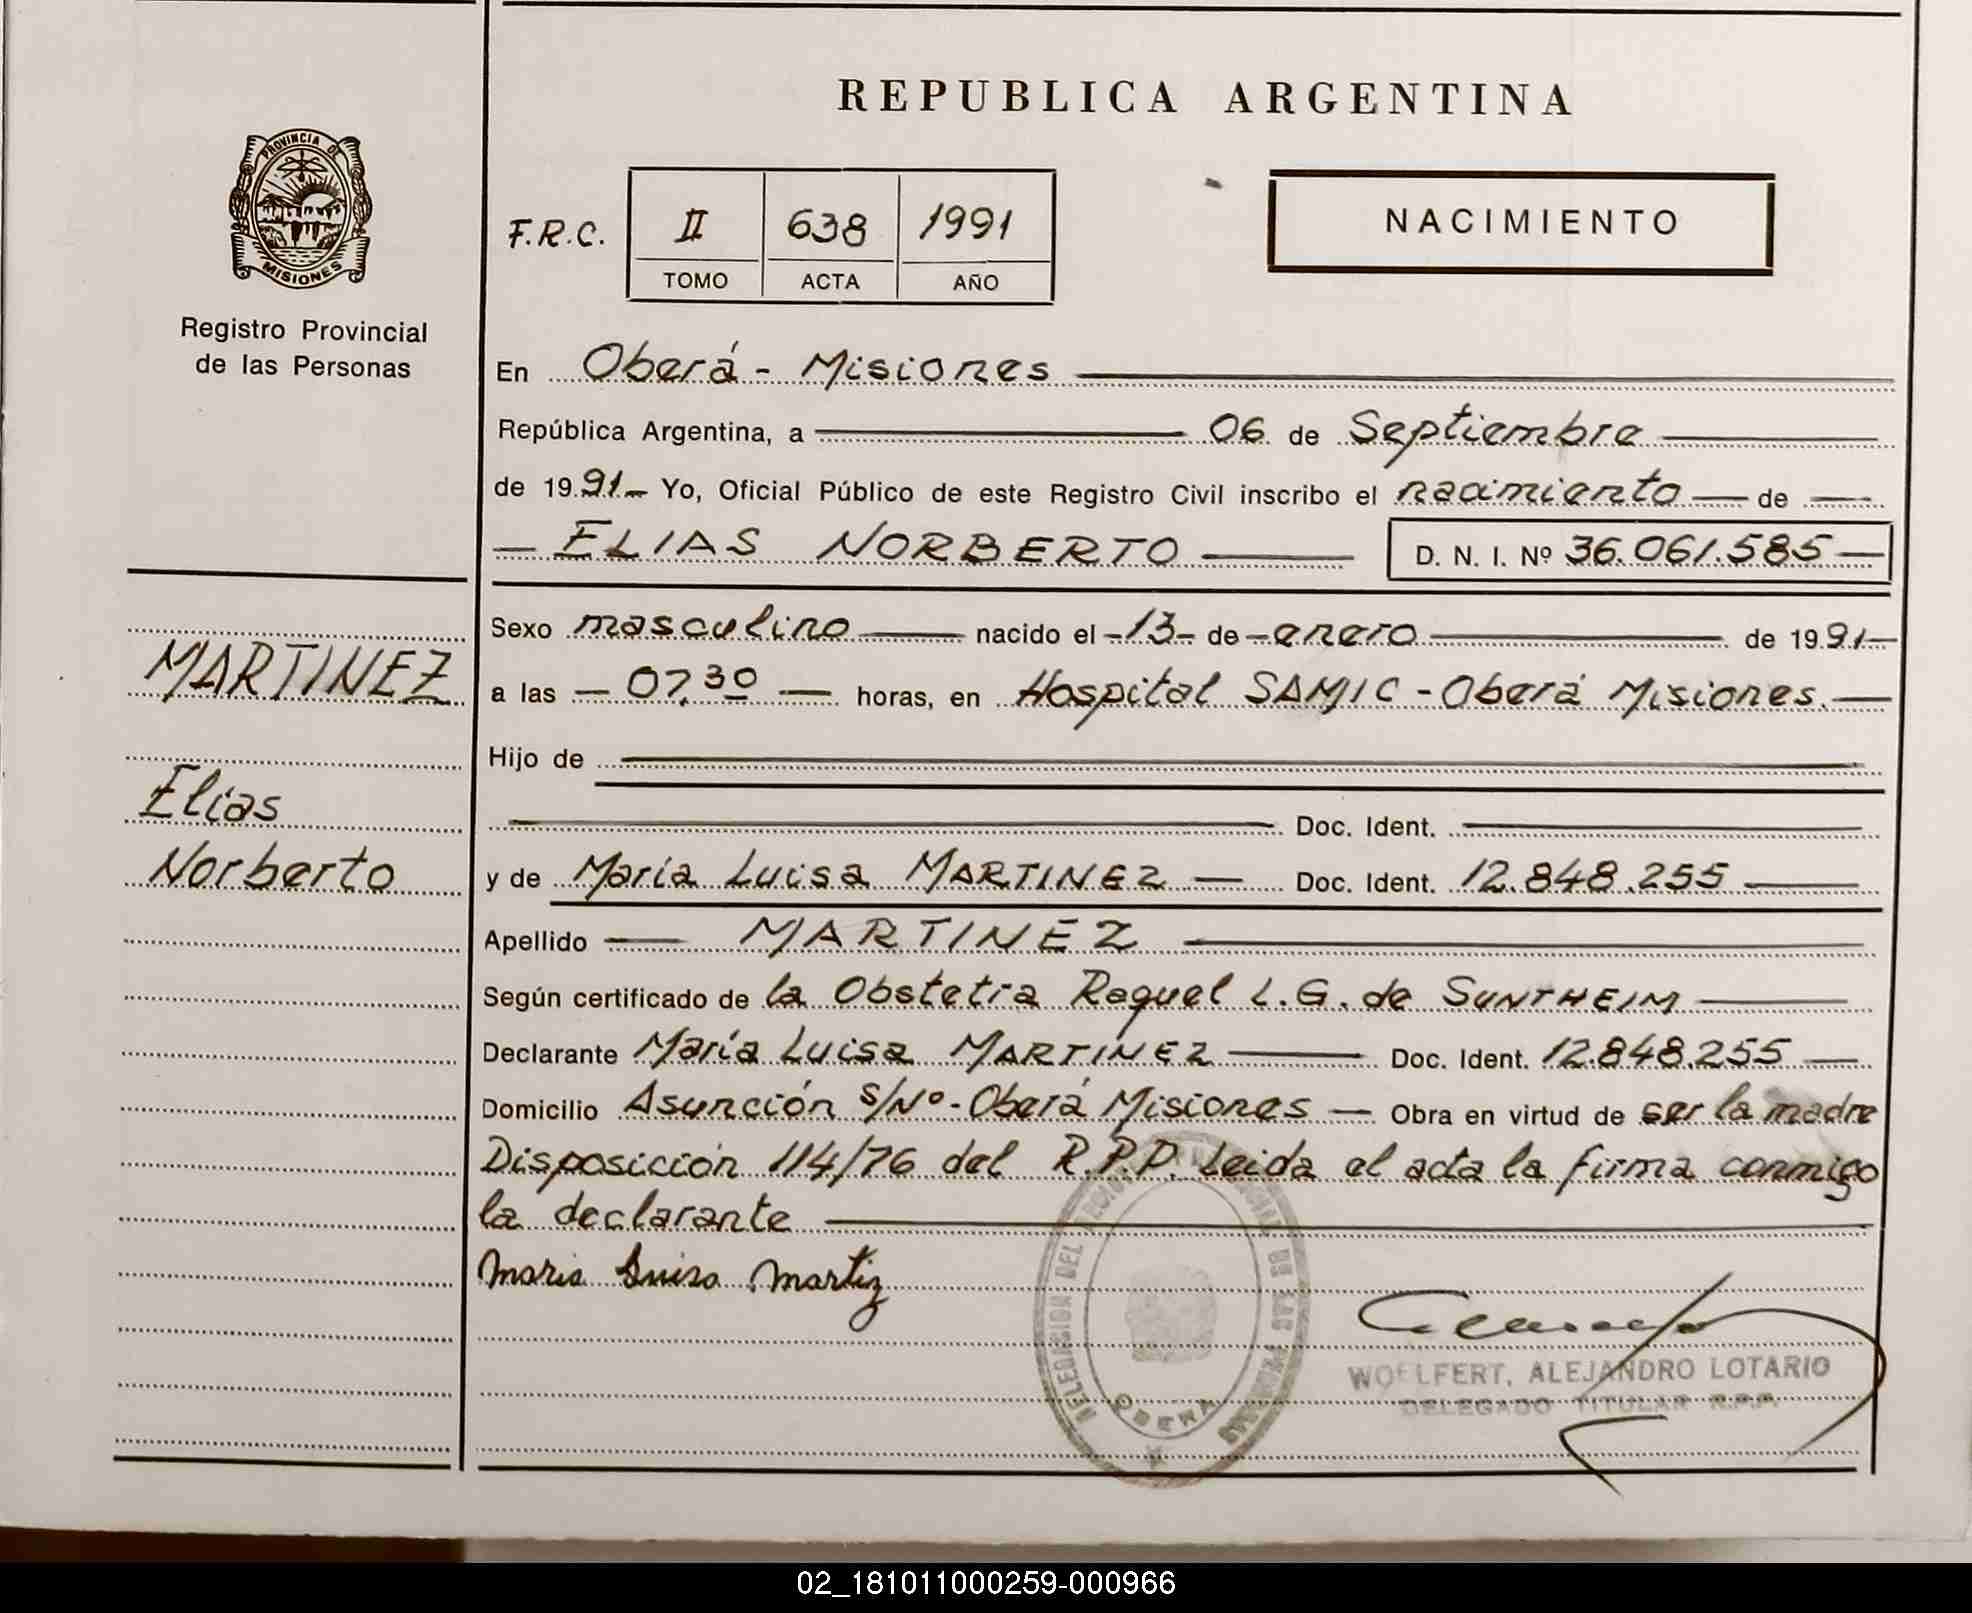 REPUBLICA ARGENTINA
PROVINCIA DE
MISIONES
Registro Provincial
de las Personas
F.R.C.
II 638 1991
TOMO ACTA AÑO
NACIMIENTO
En Oberá - Misiones
República Argentina, a 06 de Septiembre
de 1991 Yo, Oficial Público de este Registro Civil inscribo el nacimiento de
ELIAS NORBERTO D. N. I. Nº 36.061.585
MARTINEZ
Elias
Norberto
Sexo masculino nacido el 13 de enero de 1991
a las 07,30 horas, en Hospital SAMIC - Oberá Misiones.
Hijo de
Doc. Ident.
y de María Luisa MARTINEZ Doc. Ident. 12.848.255
Apellido MARTINEZ
Según certificado de la Obstetra Raquel L.G. de SUNTHEIM
Declarante María Luisa MARTINEZ Doc. Ident. 12.848.255
Domicilio Asunción S/Nº - Oberá Misiones Obra en virtud de ser la madre
Disposición 114/76 del R.P.P. Leida el acta la firma conmigo
la declarante
Maria Luisa Martiz
DELEGACION DEL REGISTRO PROVINCIAL DE LAS PERSONAS
OBERA
WOELFERT, ALEJANDRO LOTARIO
DELEGADO TITULAR R.P.P.
02_181011000259-000966